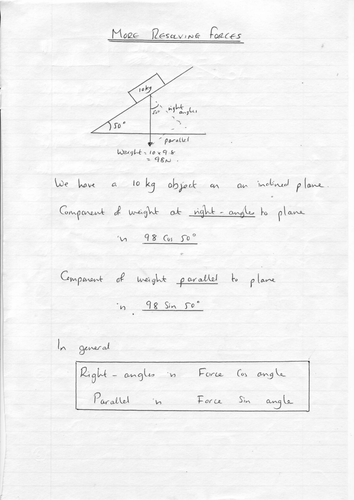 MORE RESOLVING FORCES
10kg
50°
right
angles
50°
parallel
Weight = 10 x 9.8
= 98N
We have a 10 kg object on an inclined plane
Component of weight at right-angles to plane
is 98 Cos 50°
Component of weight parallel to plane
is 98 Sin 50°
In general
Right-angles is Force Cos angle
Parallel is Force Sin angle